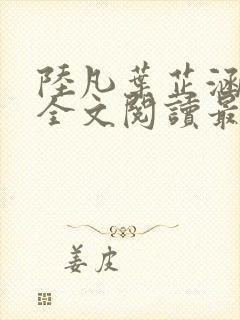 陸凡葉芷涵
全文閱讀最
姜皮